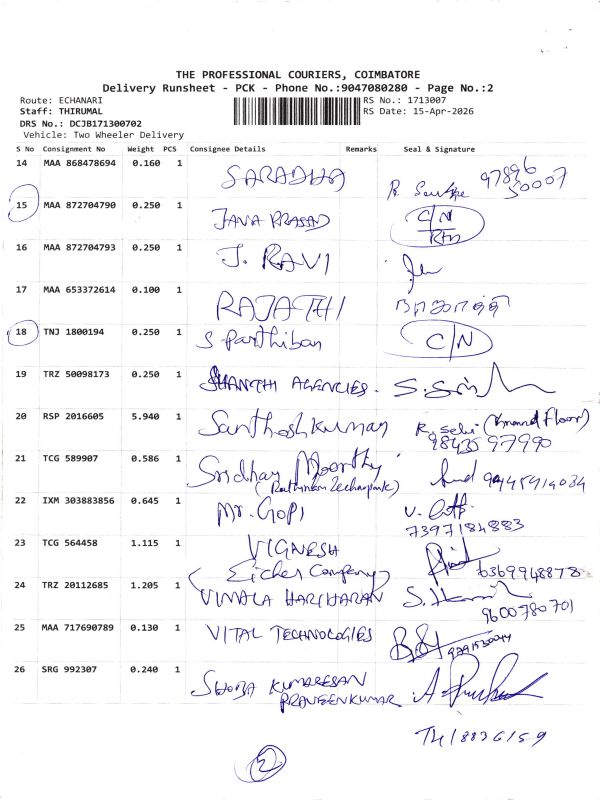 THE PROFESSIONAL COURIERS, COIMBATORE
Delivery Runsheet - PCK - Phone No.:9047080280 - Page No.:2
Route: ECHANARI RS No.: 1713007
Staff: THIRUMAL RS Date: 15-Apr-2026
DRS No.: DCJB171300702
Vehicle: Two Wheeler Delivery
S No Consignment No Weight PCS Consignee Details Remarks Seal & Signature
14 MAA 868478694 0.160 1 SARADHA
15 MAA 872704790 0.250 1 JANA PRASAD C/N
16 MAA 872704793 0.250 1 J. RAVI
17 MAA 653372614 0.100 1 RAJATHI
18 TNJ 1800194 0.250 1 S Parthiban C/N
19 TRZ 50098173 0.250 1 SHANTHI AGENCIES.
20 RSP 2016605 5.940 1 Santhoshkumar
21 TCG 589907 0.586 1 Sridhar Moorthy
22 IXM 303883856 0.645 1 Mr. GOPI
7397184883
23 TCG 564458 1.115 1 VIGNESH
(Eicher Company) 6369948878
24 TRZ 20112685 1.205 1 VIMALA HARIHARAN
9600780701
25 MAA 717690789 0.130 1 VITAL TECHNOLOGIES
26 SRG 992307 0.240 1 SHOBA KUMARESAN
PRAVEENKUMAR
2